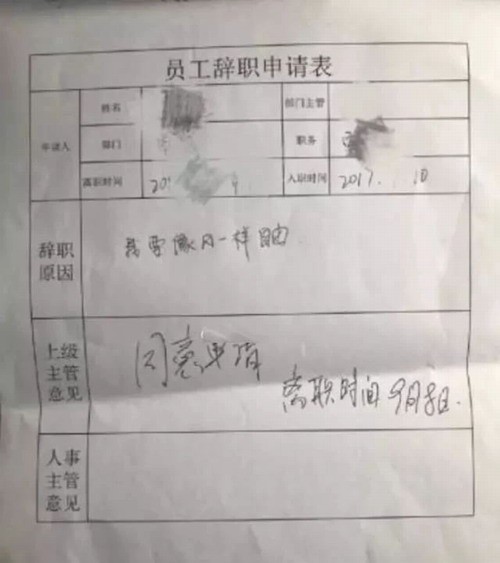 员工辞职申请表
申请人
姓名
部门主管
部门
职务
离职时间 20
入职时间 2017. 10
辞职
原因
我要像风一样自由
上级
主管
意见
同意
离职时间9月8日.
人事
主管
意见